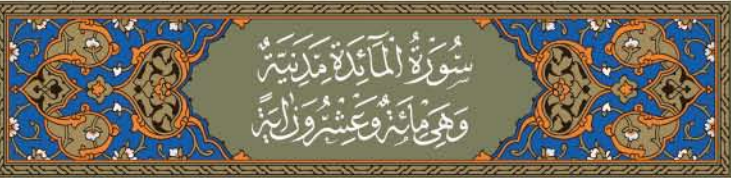 سُورَةُ الْمَآئِدَةِ مَدَنِيَّةٌ
وَهِيَ مِائَةٌ وَعِشْرُونَ اٰيَةً